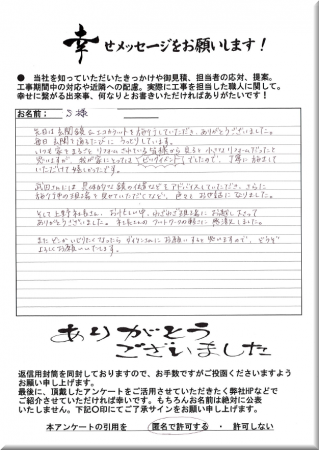 幸せメッセージをお願いします！
● 当社を知っていただいたきっかけや御見積、担当者の応対、提案。
工事期間中の対応や近隣への配慮。実際に工事を担当した職人に関して。
幸せに繋がる出来事、何なりとお書きいただければありがたいです！
お名前： S 様
先日は玄関鏡&エコカラットを施工していただき、ありがとうございました。
毎日玄関を通るたびに うっとりしています。
いつも家をまるごとリフォームされている皆様から見ると小さなリフォームだったと
思いますが、我が家にとっては ビッグイベント でしたので、丁寧に施工して
いただけて嬉しかったです。
武田さんには 具体的な鏡の位置などをアドバイスしていただき、さらに
施工中の現場を見せていただくなど、色々とお世話になりました。
そして上野社長さん、お忙しい中、わざわざ現場にお越し下さって
ありがとうございました。社長さんのフットワークの軽さに感激しました。
またどこかいじりたくなったら ダイクンさんにお願いすると思いますので、どうぞ
よろしくお願いいたします。
ありがとう
ございました
返信用封筒を同封しておりますので、お手数ですがご投函くださいますよう
お願い申し上げます。
最後に、頂戴したアンケートをご活用させていただきたく弊社HPなどで
ご紹介させていただければ幸いです。もちろんお名前は絶対に公表
いたしません。下記〇印にてご了承サインをお願い申し上げます。
本アンケートの引用を 匿名で許可する ・ 許可しない